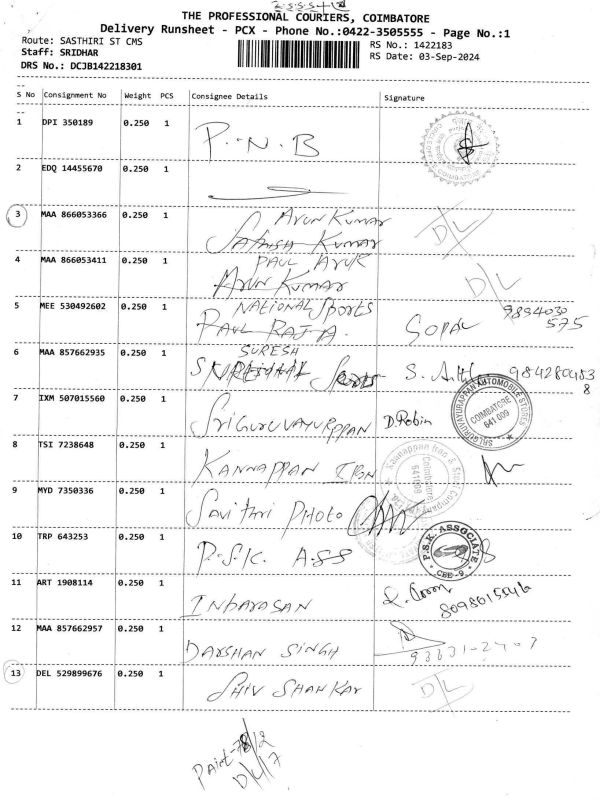 THE PROFESSIONAL COURIERS, COIMBATORE
Delivery Runsheet - PCX - Phone No.:0422-3505555 - Page No.:1
Route: SASTHIRI ST CMS
RS No.: 1422183
Staff: SRIDHAR
RS Date: 03-Sep-2024
DRS No.: DCJB142218301
S No Consignment No Weight PCS Consignee Details Signature
1 DPI 350189 0.250 1 P.N.B
2 EDQ 14455670 0.250 1
3 MAA 866053366 0.250 1 Arun Kumar D/L
Sathish Kumar
4 MAA 866053411 0.250 1 PAUL D/L
Arun Kumar
5 MEE 530492602 0.250 1 NATIONAL Sports GOPAL 9894030
PAUL RAJA. 575
6 MAA 857662935 0.250 1 SURESH
Sports S.
7 IXM 507015560 0.250 1 SriGuruvayurppan D.Robin
SRI GURUVAYURAPPAN AUTOMOBILE STORES
COIMBATORE
641 009
8 TSI 7238648 0.250 1 KANNAPPAN
Coimbatore
9 MYD 7350336 0.250 1 Savithri PHOTO
10 TRP 643253 0.250 1 P.S.K. ASS
P.S.K. ASSOCIATE
CBE-9
11 ART 1908114 0.250 1 INBARASAN
12 MAA 857662957 0.250 1 DARSHAN SINGH 93631-2707
13 DEL 529899676 0.250 1 SHIV SHANKAR D/L